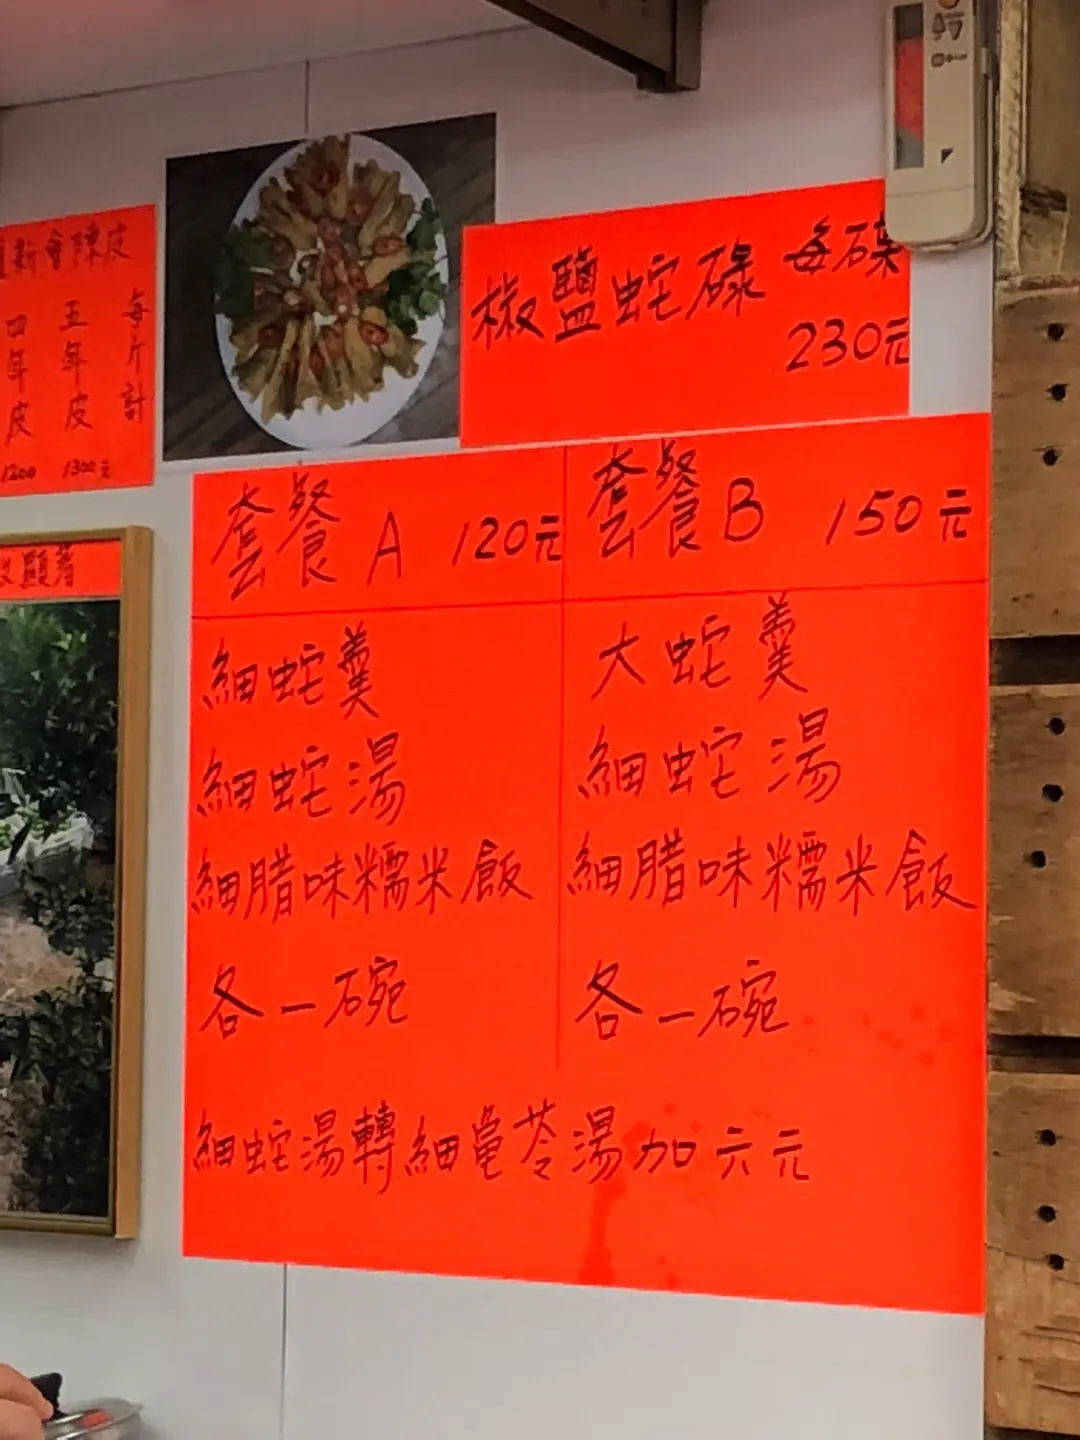 新會陳皮
每斤計
五年皮 1300元
四年皮 1200
椒鹽蛇碌 每碟
230元
套餐A 120元
細蛇羹
細蛇湯
細腊味糯米飯
各一碗
套餐B 150元
大蛇羹
細蛇湯
細腊味糯米飯
各一碗
細蛇湯轉細龜苓湯加六元
顯著